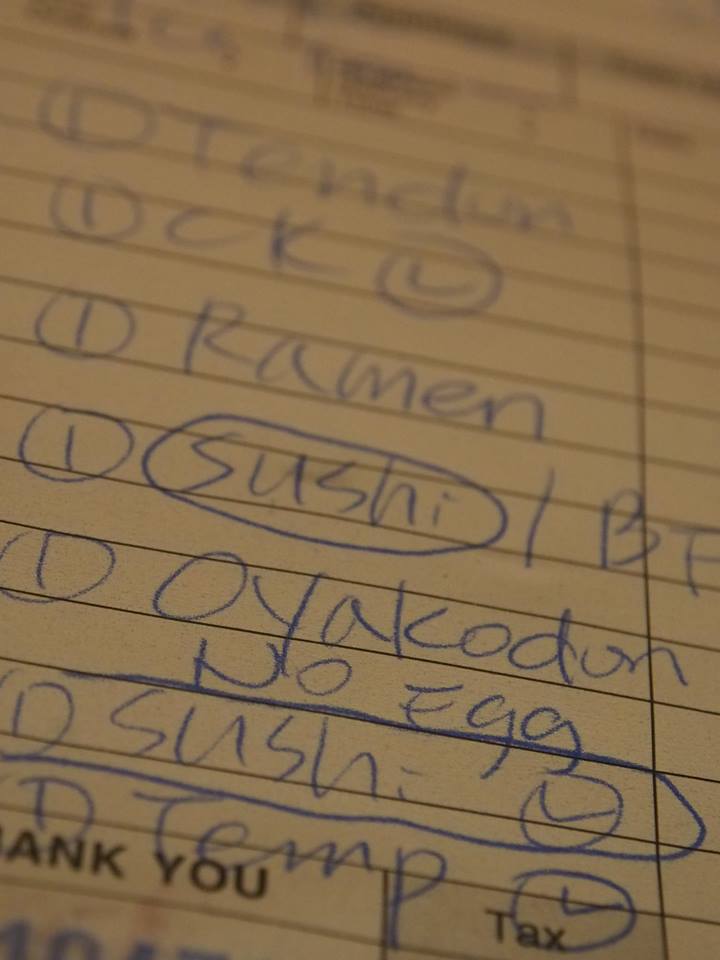 ① Tendun
① CK Ⓛ
① Ramen
① Sushi / BF
① Oyakodon
No Egg
① Sushi Ⓛ
① Temp Ⓛ
HANK YOU
Tax